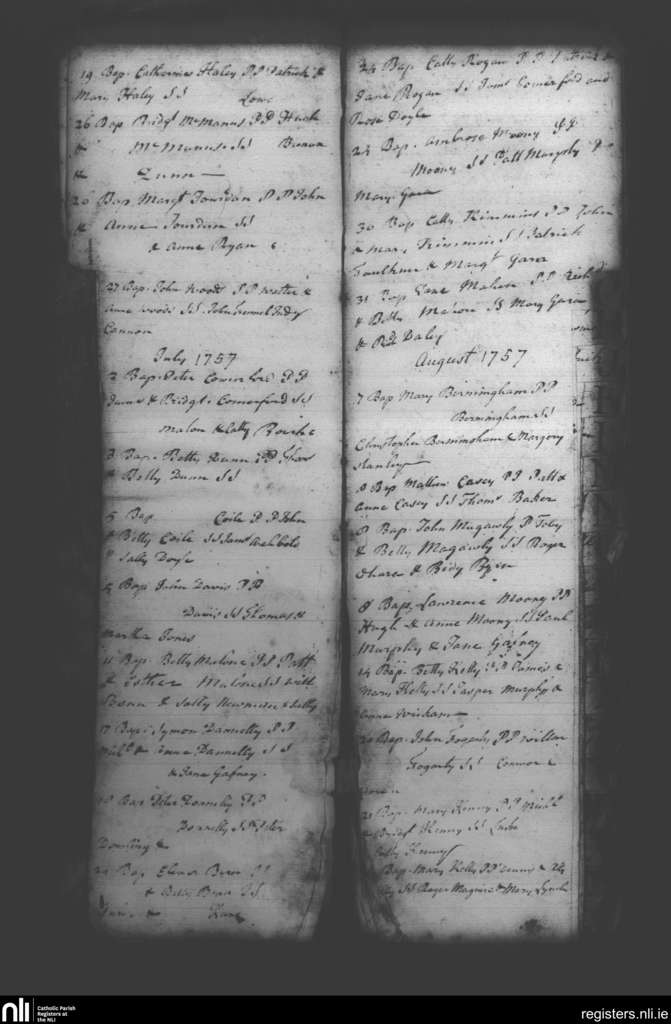 19 Bap. Catherine Haley PP Patrick &
Mary Haley SS
26 Bap Bridgt McManus PP Hugh
& McManus SS
& Quinn
26 Bap. Margt Jourdan PP John
& Anne Jourdan SS
& Anne Ryan
27 Bap. John Woods PP Walter &
Anne Woods SS. John
Cannon
July 1757
2 Bap. Peter Comerford PP
James & Bridgt. Comerford SS
Malon & Catty Rourke
3 Bap. Betty Dunn PP
& Betty Dunn SS
5 Bap Coile PP John
& Betty Coile SS James Archbold
& Sally Doyle
5 Bap John Davis PP
Davis SS Thomas &
Martha Jones
11 Bap. Betty Malone PP Patt
& Esther Malone SS Will
& Sally
17 Bap. Symon Dannelly PP
Michl & Anne Dannelly SS
& Jane Gafney.
18 Bap Peter Donnelly PP
Donnelly SS Peter
Dowling &
24 Bap
& Betty SS
24 Bap Catty Rogan PP Patrick &
Jane Rogan SS James Comerford and
Rose Doyle
24 Bap. Ambrose Moony PP
Moony SS Patt Murphy &
Mary Gara
30 Bap Catty Kimmins PP John
& Mary Kimmins SS Patrick
Faulkner & Margt Gara
31 Bap Jane Mahon PP Richd
& Betty Mahon SS Mary Gara
& Rd Daley
August 1757
7 Bap Mary Birmingham PP
Birmingham SS
Christopher Birmingham & Margery
Stanley
8 Bap Matthew Casey PP Patt &
Anne Casey SS Thoms Baker
8 Bap. John Magawly P Toby
& Betty Magawly SS Roger
Ohara & Bidy Byrn
8 Bap. Lawrence Moony PP
Hugh & Anne Moony SS Paul
Murphy & Jane Gafney
14 Bap. Betty Kelly PP Francis &
Mary Kelly SS Jasper Murphy &
Anne
20 Bap. John Fogarty PP William
Fogarty SS Connor &
21 Bap. Mary Kenny PP Michl
& Bridgt Kenny SS Luke
Betty Kenny
Bap. Mary Kelly PP &
SS Roger Maguire & Mary Lynch
nli Catholic Parish
Registers at
the NLI
registers.nli.ie